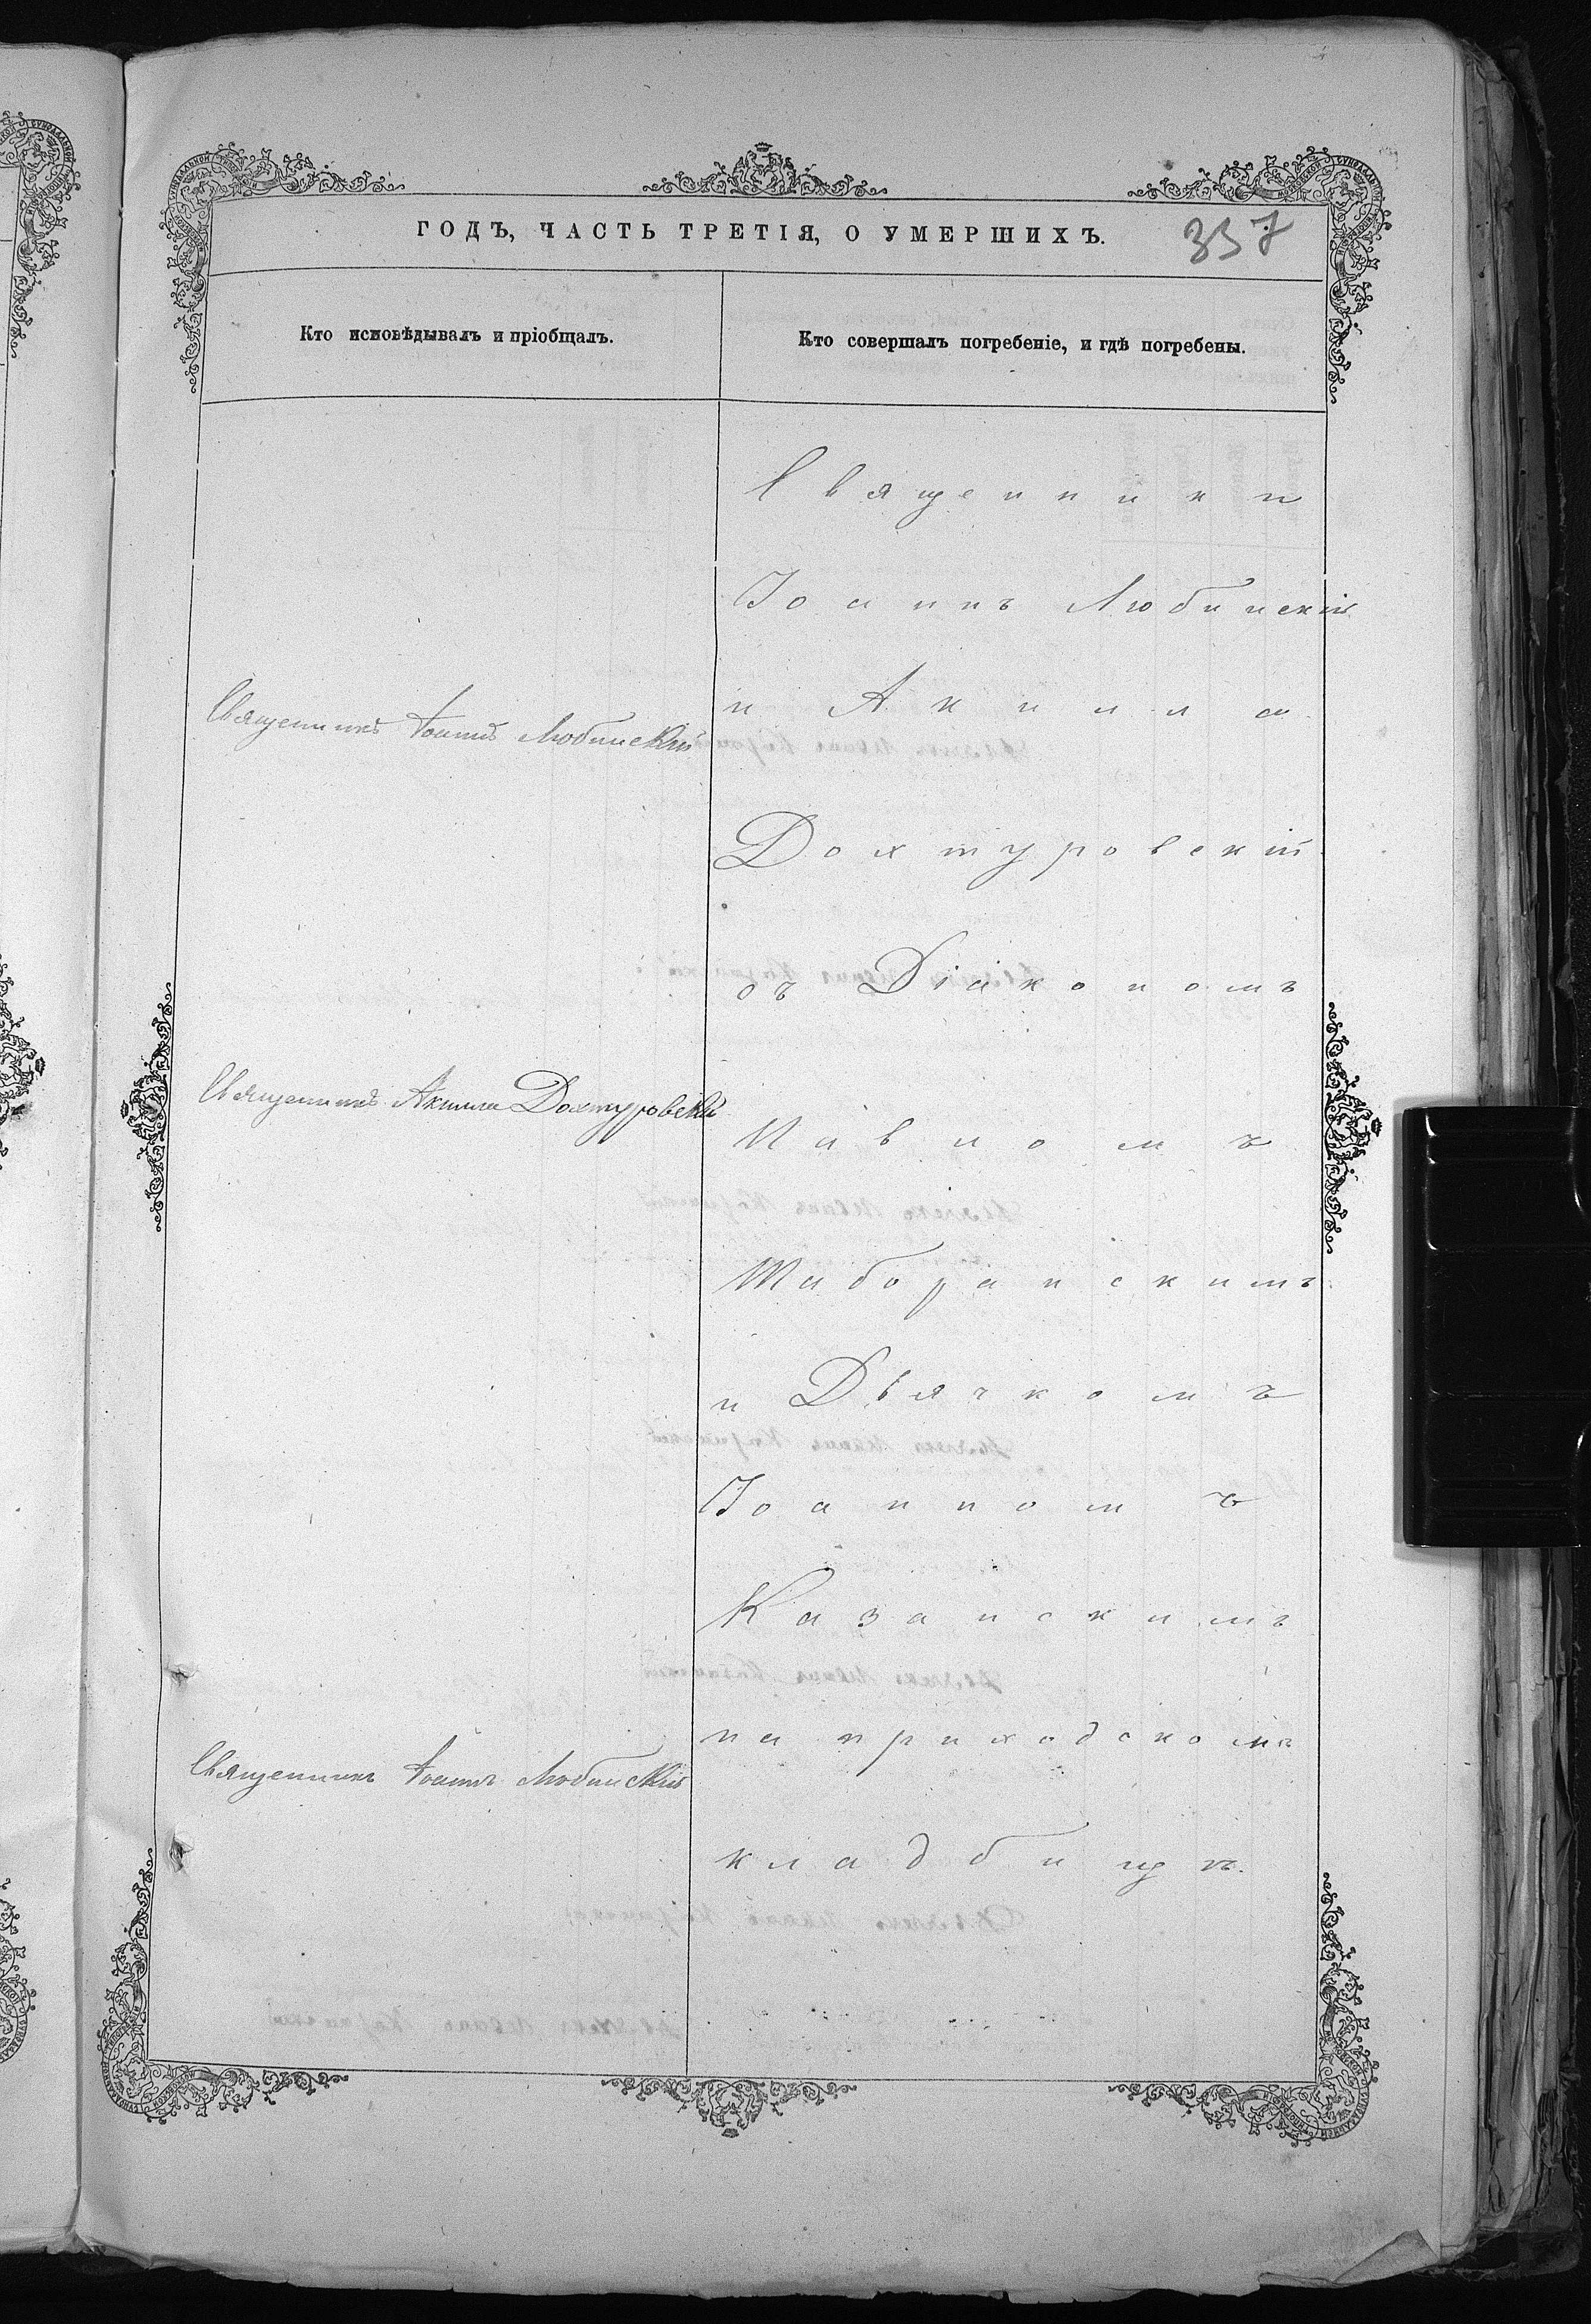 ГОДЪ, ЧАСТЬ ТРЕТІЯ, О УМЕРШИХЪ.
357
Кто исповѣдывалъ и пріобщалъ.
Кто совершалъ погребеніе, и гдѣ погребены.
Священникъ Іоаннъ Любинскій
Священникъ Акила Дохтуровскій
Священникъ Іоаннъ Любинскій
Священники
Іоаннъ Любинскій
и Акила
Дохтуровскій
съ Діакономъ
Павломъ
Таборанскимъ
и Дьячкомъ
Іоанномъ
Казанскимъ
на приходскомъ
кладбищѣ.